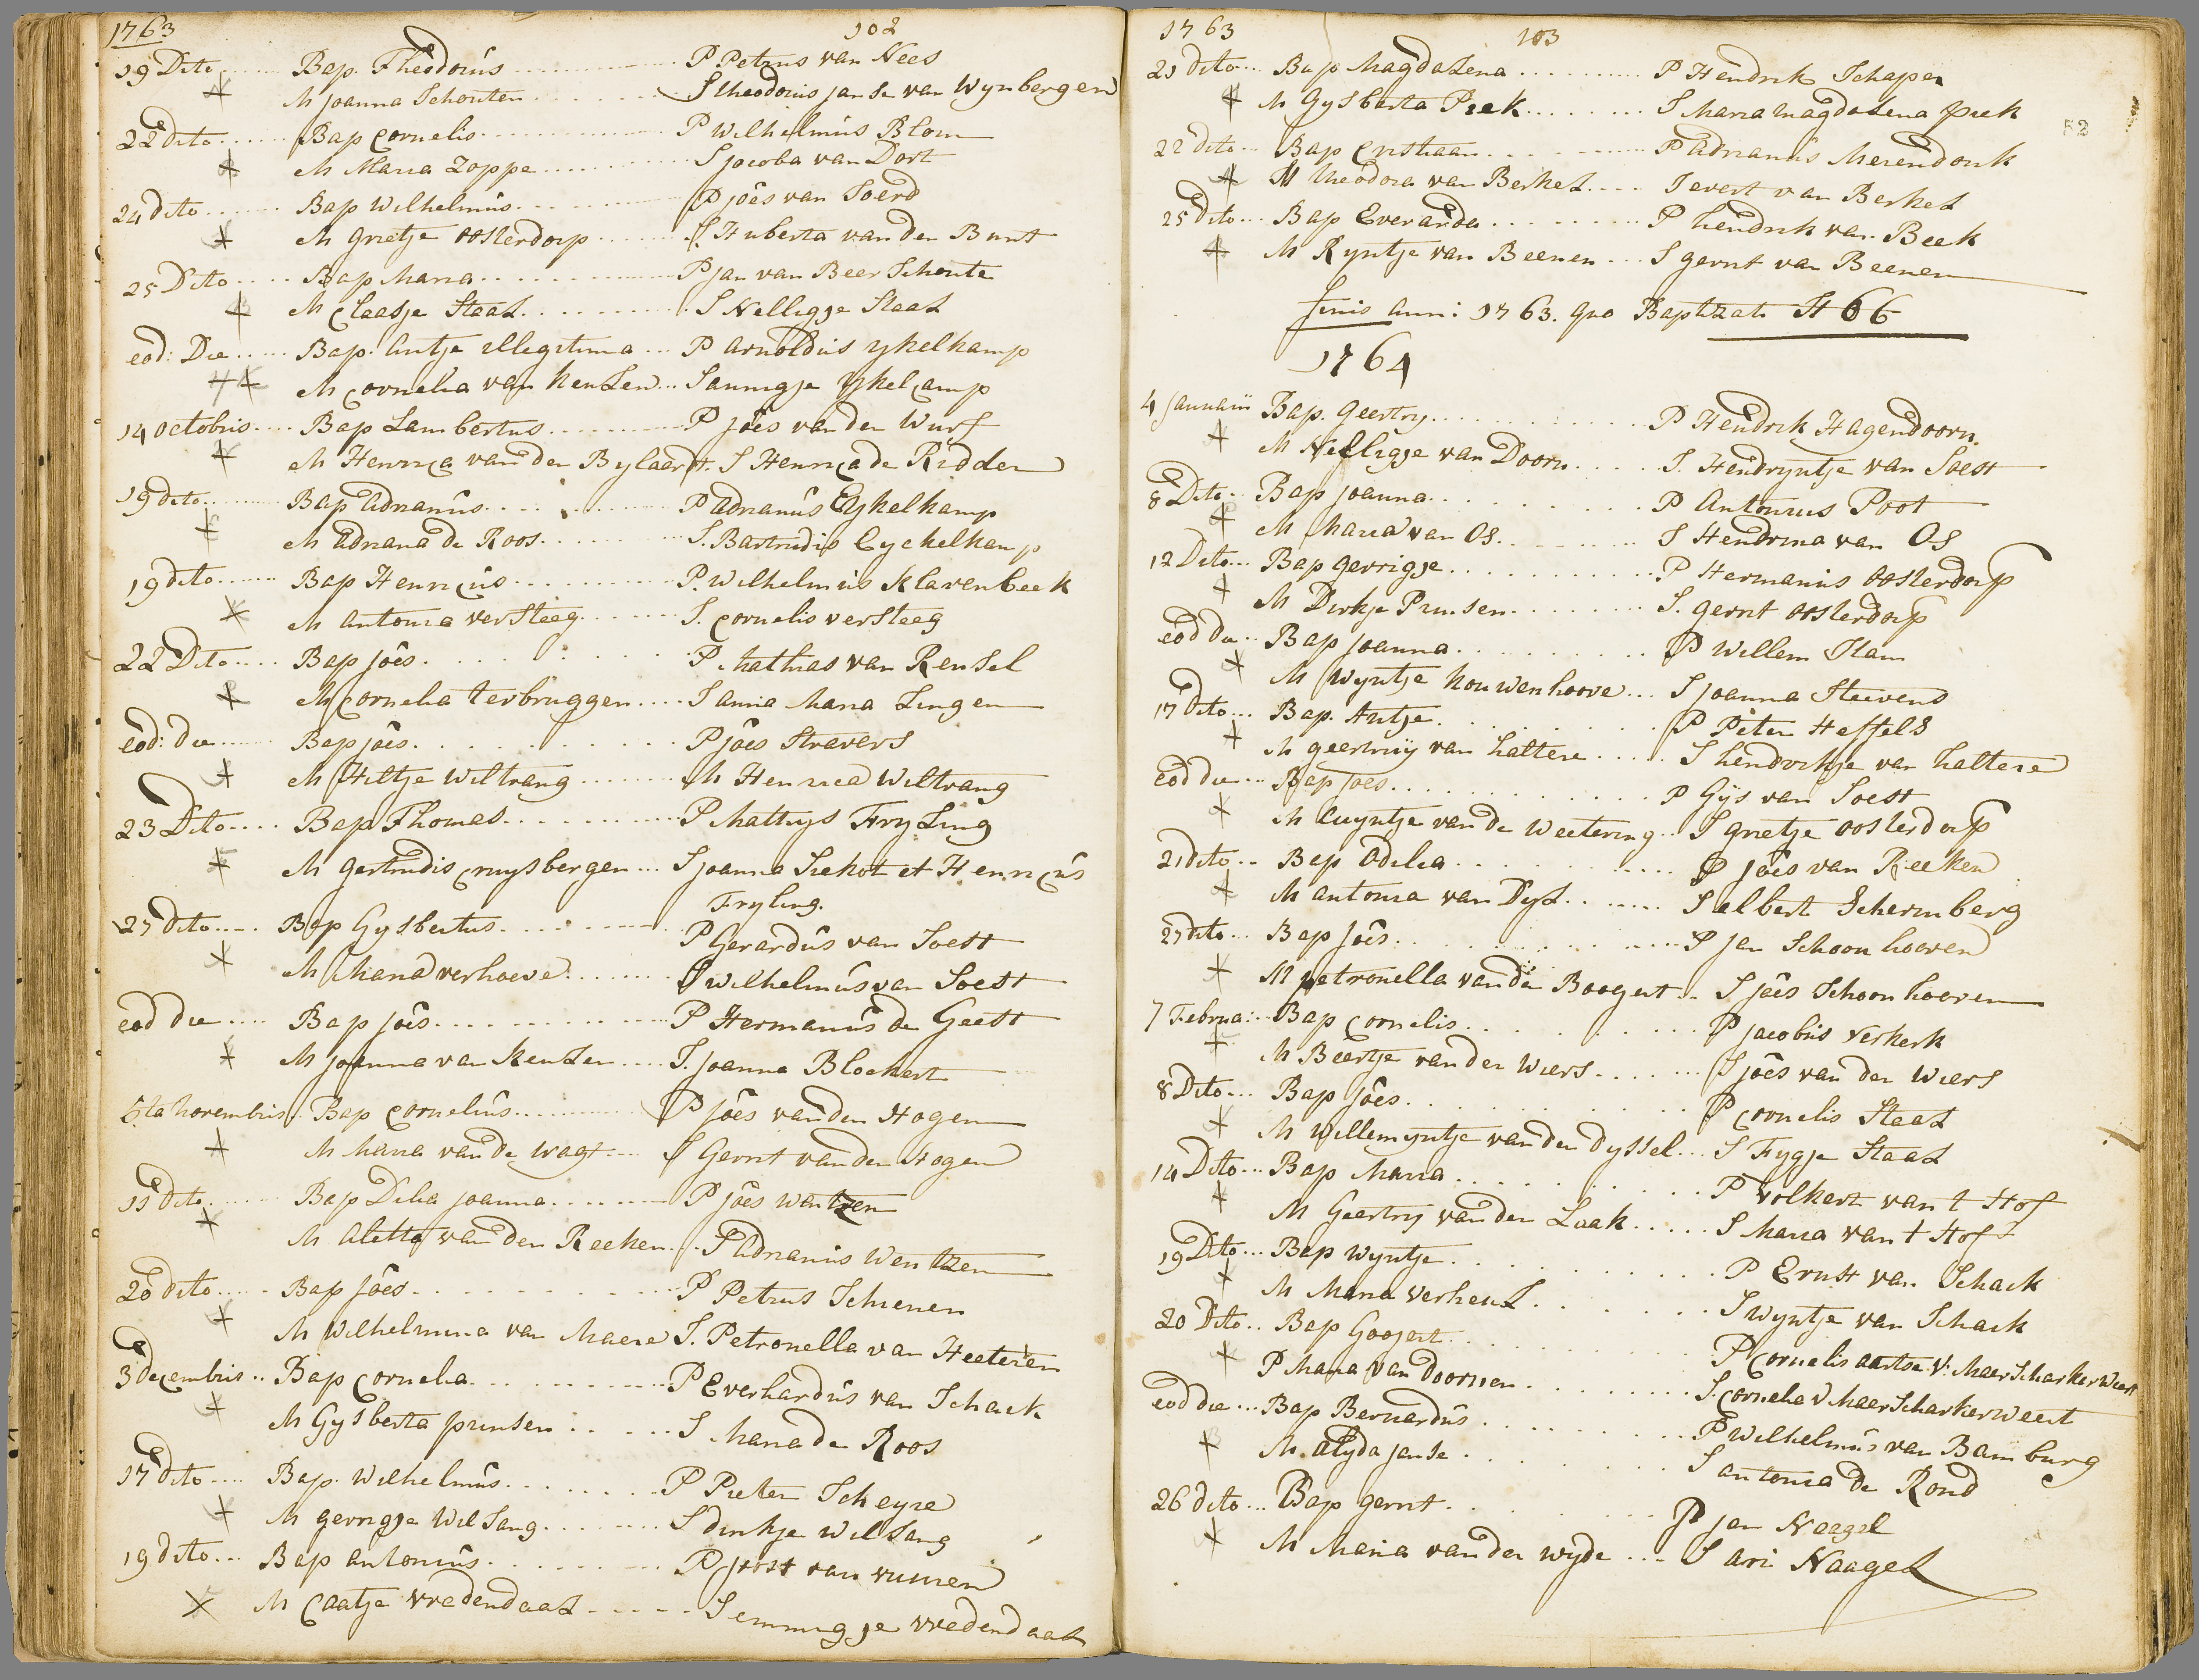 1763
102
19 Dito Bap. Theodorus P Petrus van Nees
M joanna Schouten S theodorus janse van Wynbergen
22 dito Bap Cornelis P Wilhelmus Blom
M Maria Zoppe S jacoba van Dort
24 dito Bap Wilhelmus P joês van Soerd
M grietje oosterdorp S Huberta van den Bunt
25 Dito Bap Maria P jan van Beer Schoute
M Claasje Staal S Nelligje Staal
eod: Die Bap. Antje illegitima P Arnoldus ykelkamp
M Cornelia van keulen S annigje ykelcamp
14 octobris Bap Lambertus P joês van den Wurf
M Henrica van den Bylaerdt. S Henrica de Ridder
19 dito Bap Adrianus P Adrianus Eykelkamp
M Adriana de Roos S. Bartrudis Eyckelkamp
19 dito Bap Henricus P. Wilhelmus Klarenbeek
M Antonia versteeg S. Cornelis versteeg
22 Dito Bap joês P Mathias van Rensel
M Cornelia terbruggen S anna Maria Lingen
eod: die Bap joês P joês Stravers
M Hiltje Wiltrang M Henrica Wiltrang
23 Dito Bap Thomas P Mathys Fryling
M Gertrudis Cruysbergen S joanna Siekot et Henricus
Fryling.
27 dito Bap Gysbertus P Gerardus van Soest
M Maria verhoeve S Wilhelmus van Soest
eod die Bap joês P Hermanus de Geest
M joanna van Keulen S. joanna Blockert
5ta Novembris Bap Cornelius P joês van den Hogen
M Maria van de Wagt S Gerrit van den Hogen
11 dito Bap Delia joanna P joês Wentzen
M Aletta van den Reeken S Adrianus Wentzen
20 dito Bap joês P Petrus Schienen
M Wilhelmina van Maere S. Petronella van Heeteren
3 decembris Bap Cornelia P Everhardus van Schaik
M Gysberta prinsen S Maria de Roos
17 dito Bap. Wilhelmus P Pieter Scheyre
M gerrigje Wilsang S dirkje Wilsang
19 dito Bap antonius P joost van vuuren
M Caatje vredendaal S emmigje vredendaal
1763
103
52
21 dito Bap Magdalena P Hendrik Schapen
M Gysberta Piek S Maria Magdalena piek
22 dito Bap Cristiaan P Adrianus Merendonk
M theodora van Berkel S evert van Berkel
25 dito Bap Everarda P hendrik van Beek
M Ryntje van Beenen S gerrit van Beenen
finis Anni 1763. quo Baptizati St 66
1764
4 januarii Bap. Geertry P Hendrik Hagendoorn.
M Nelligje van Doorn S. Hendryntje van Soest
8 Dito Bap joanna P Antonius Poot
M Maria van Os S Hendrina van Os
12 Dito Bap Gerrigje P Hermanus oosterdorp
M Dirkje Prinsen S. gerrit oosterdorp
eod die Bap joanna P Willem Stam
M Wyntje kouwenhoove S joanna Stuivend
17 dito Bap. Antje P Pêter Heffels
M geertruy van haltere S hendrikje van haltere
eod die Bap joes P Gys van Soest
M Luyntje van de weetering S grietje oosterdorp
21 dito Bap Odilia P joês van Reeken
M antonia van Dyl S albert Schermberg
27 dito Bap joês P jan Schoonhooven
M petronella van den Boogert S joês Schoonhooven
7 Februa: Bap Cornelis P jacobus verkerk
M Beertje van der Wiers S joês van der Wiers
8 Dito Bap joês P Cornelis Staal
M Willemyntje van den dyssel S Fygje Staal
14 Dito Bap Maria P volkert van t Hof
M Geertry van den Laak S Maria van t Hof
19 Dito Bap Wyntje P Ernst van Schaik
M Maria verheul S Wyntje van Schaik
20 Dito Bap Goojert P Cornelis aartse V: MaerScharkerWeert
P Maria van doornen S. Cornelia V MaerScharkerweert
eod die Bap Bernardus P Wilhelmus van Bamburg
M. Alyda janse S antonia de Rond
26 dito Bap gerrit P jan Naagel
M Maria van der wyde S Ari Naagel